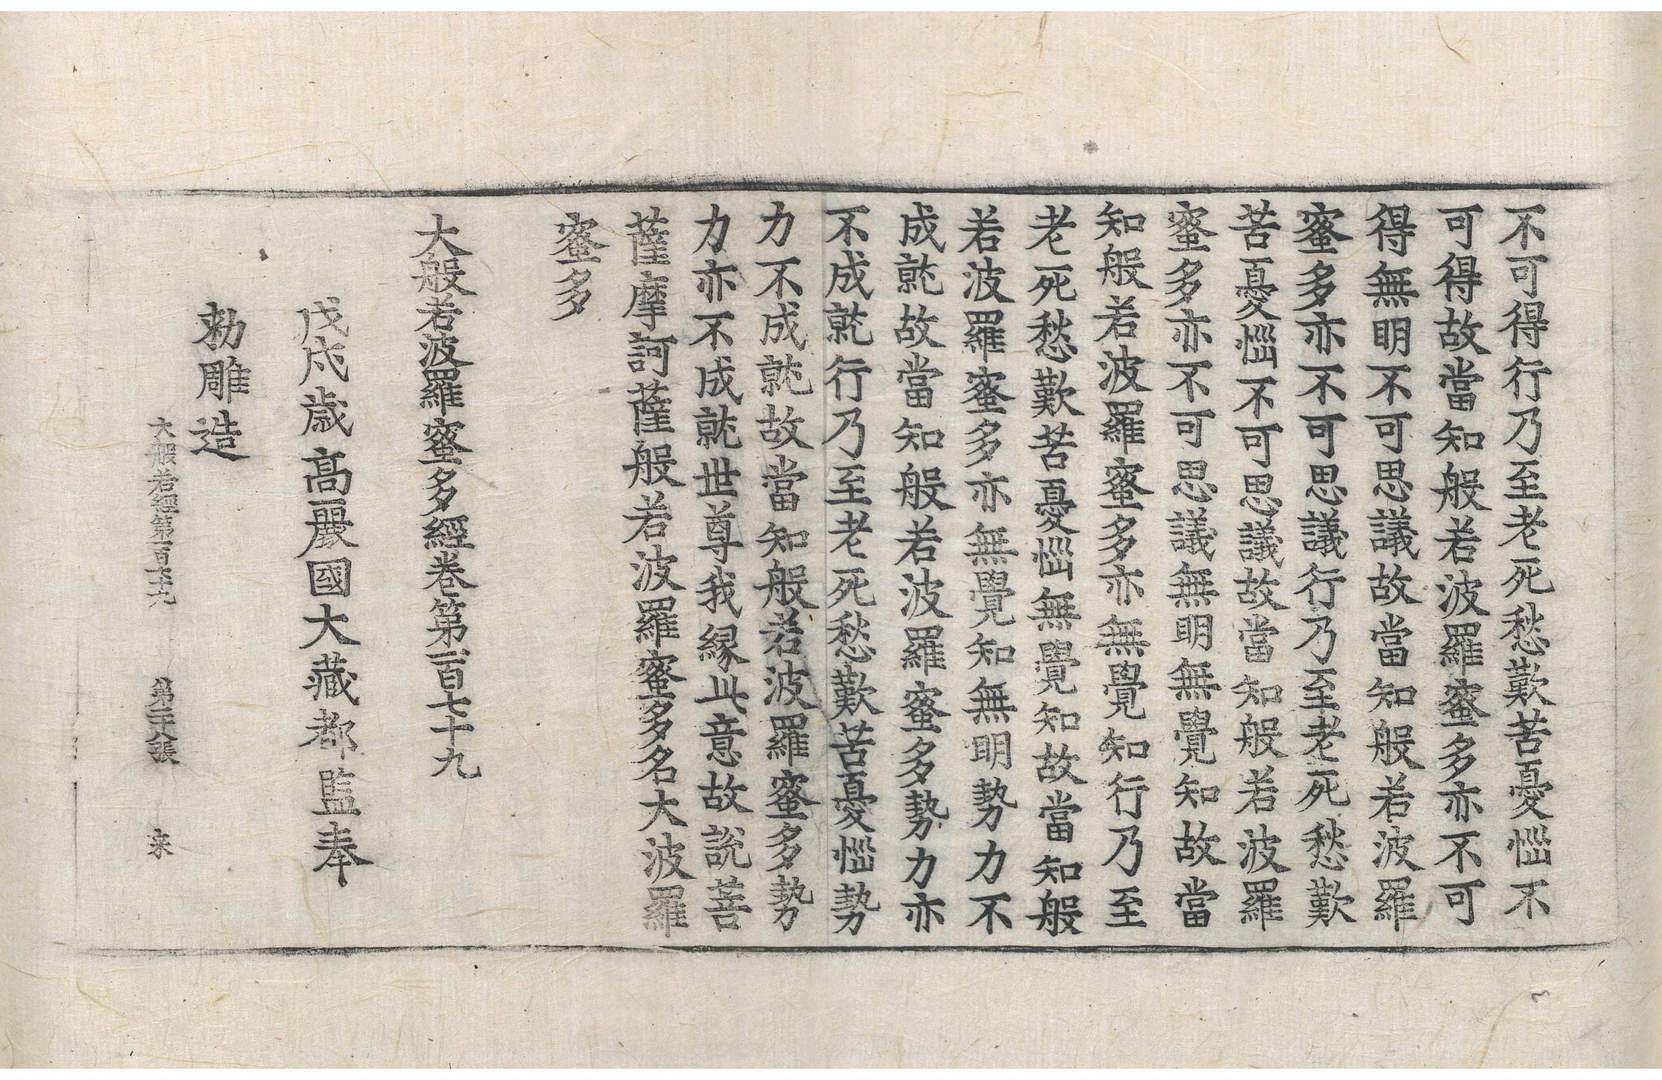 不可得行乃至老死愁歎苦憂惱不
可得故當知般若波羅蜜多亦不可
得無明不可思議故當知般若波羅
蜜多亦不可思議行乃至老死愁歎
苦憂惱不可思議故當知般若波羅
蜜多亦不可思議無明無覺知故當
知般若波羅蜜多亦無覺知行乃至
老死愁歎苦憂惱無覺知故當知般
若波羅蜜多亦無覺知無明勢力不
成就故當知般若波羅蜜多勢力亦
不成就行乃至老死愁歎苦憂惱勢
力不成就故當知般若波羅蜜多勢
力亦不成就世尊我緣此意故說菩
薩摩訶薩般若波羅蜜多名大波羅
蜜多
大般若波羅蜜多經卷第一百七十九
戊戌歲高麗國大藏都監奉
勅雕造
大般若經第一百七十九 第二十八張 來